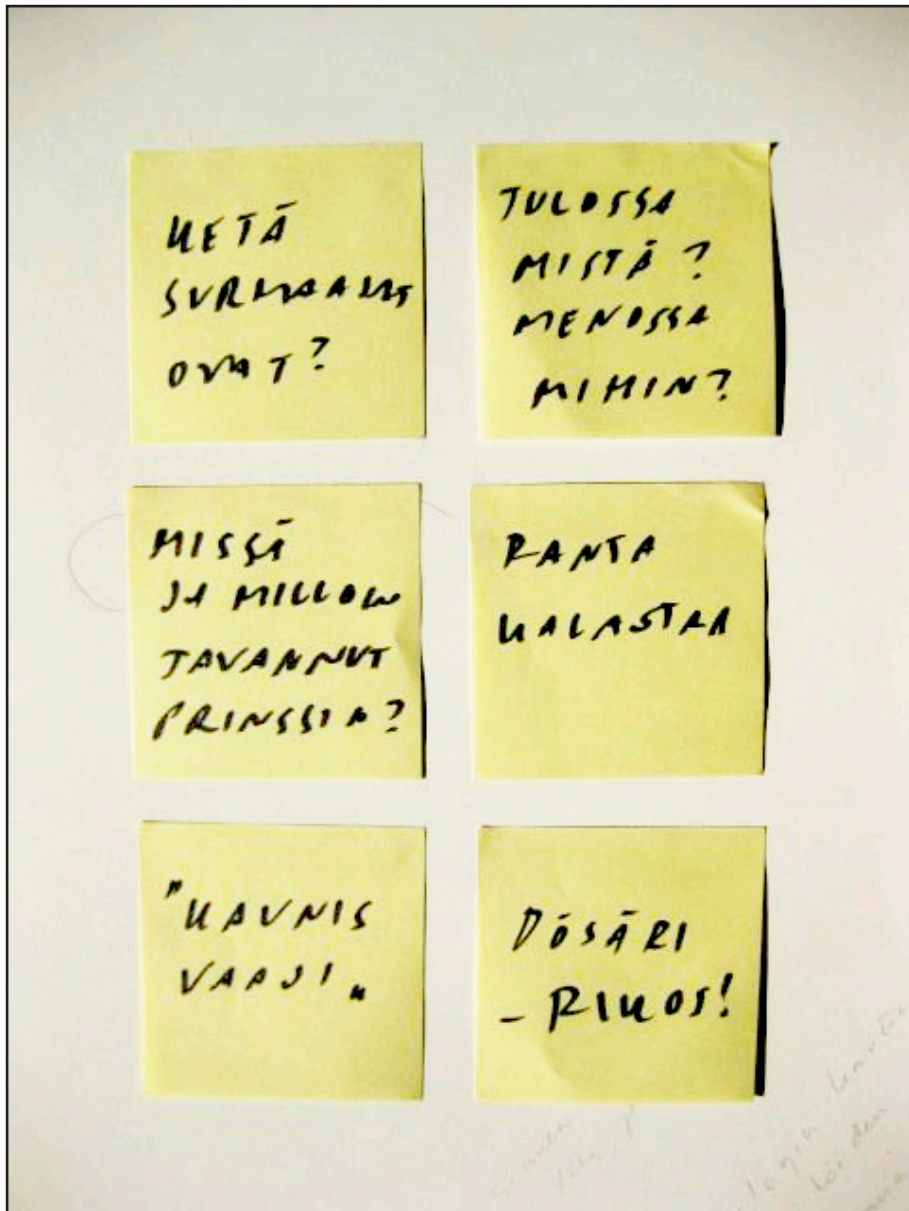 KETÄ
SURMAAJAT
OVAT?
TULOSSA
MISTÄ?
MENOSSA
MIHIN?
MISSÄ
JA MILLOIN
TAVANNUT
PRINSSIN?
RANTA
KALASTAA
"KAUNIS
VAASI"
DÖSÄRI
- RIKOS!